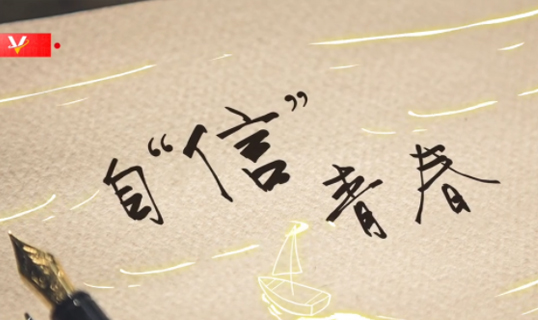 自“信”青春